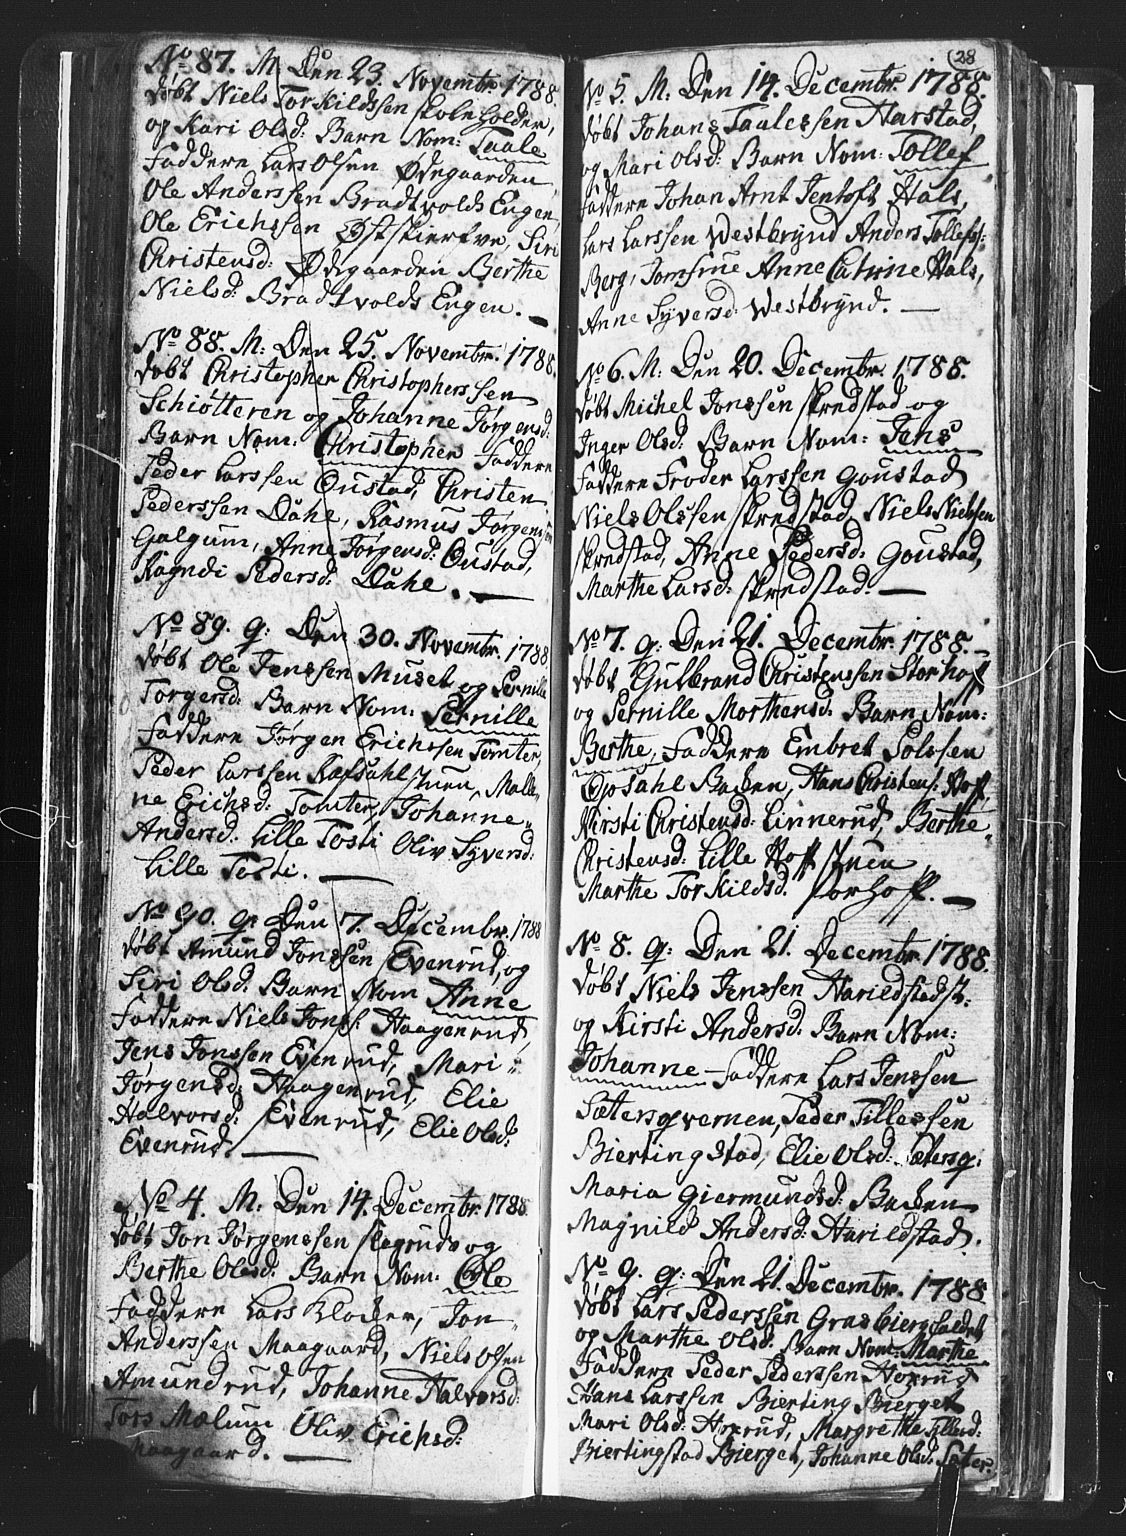 No 87. M. Den 23. Novembr. 1788.
døbt Niels Torkildssen skoleholder,
og Kari Olsd: Barn Nom: Taale
Faddere Lars Olsen Ødegaarden,
Ole Anderssen Bradtvolds Eugen,
Ole Erichssen Østskiertve, Siri
Christensd: Ødegaarden Berthe
Nielsd: Bradtvolds Engen. —
No 88. M: Den 25. Novembr. 1788.
døbt Christopher Christopherssen
Schiøtteren og Johanne Jørgensd:
Barn Nom: Christopher Faddere
Peder Larssen Oustad, Christen
Pederssen Dahe, Rasmus Jørgensen
Galgum, Anne Jørgensd: Oustad,
Ragndi Pedersd: Dahe. —
No 89. g: Den 30. Novembr. 1788.
døbt Ole Jenssen Musel og Pernille
Torgersd: Barn Nom: Pernille
Faddere Jørgen Erichssen Tomter,
Peder Larssen Rafsahl stuen, Malle-
ne Erichsd: Tomter, Johanne
Andersd: Lille Tosti Oliv Syversd:
Lille Tosti. —
No 90. g: Den 7. Decembr. 1788
døbt Amund Jonssen Evenrud, og
Siri Olsd: Barn Nom Anne
Faddere Niels Jonss: Haagenrud,
Jens Jonssen Evenrud, Mari
Jørgensd: Haagenrud, Elie
Halvorsd: Evenrud, Elie Olsd:
Evenrud. —
No 4. M: Den 14. Decembr. 1788
døbt Jon Jørgenssen skogrude og
Berthe Olesd: Barn Nom: Ole
Faddere Lars Klocker, Jon
Anderssen Maagaard, Niels Olsen
Amundrud, Johanne Halvorsd:
Tors Mælum Oliv Erichsd:
Maagaard. —
(28
No 5. M: Den 14. Decembr. 1788.
døbt Johans Taalessen Harstad,
og Mari Olsd: Barn Nom: Tollef
Faddere Johan Arnt Jentoft Hals,
Lars Larssen Westbrynd Anders Tollefss:
Berg, Jomfrue Anne Catrine Hals,
Anne Syversd: Westbrynd. —
No 6. M: Den 20. Decembr. 1788.
døbt Michel Jonssen skredstad og
Inger Olsd: Barn Nom: Jens
Faddere Froder Larssen Goustad
Niels Olssen skredstad, Niels Nielsen
skredstad, Anne Pedersd: Goustad,
Marthe Larsd: skredstad: —
No 7. g: Den 21. Decembr. 1788. —
døbt Gulbrand Christenssen Storhoff
og Pernille Morthensd: Barn Nom:
Berthe, Faddere Embret Polssen
Opsahl Backen, Hans Christens: Hoff,
Kirsti Christensd: Linnerud, Berthe
Christensd: Lille Hoff stuen
Marthe Torkildsd. storhoff. —
No 8. g: Den 21. Decembr. 1788.
døbt Niels Jenssen Harildstadst:
og Kirsti Andersd: Barn Nom:
Johanne Faddere Lars Jenssen
Sætersqvernen, Peder Tillessen
Biertingstad, Elie Olsd: Sætersq:
Maria Giermundsd: Backen
Magnild Andersd: Harildstad.
No 9. g: Den 21. Decembr. 1788
døbt Lars Pederssen Grasbiergfaldet
og Marthe Olsd: Barn Nom: Marthe
Faddere Peder Pederssen Hoxrud
Hans Larssen Bierting Bierget
Mari Olsd: Hoxrud, Margrethe Tillesd:
Biertingstad Bierget, Johanne Olsd: Sæter.